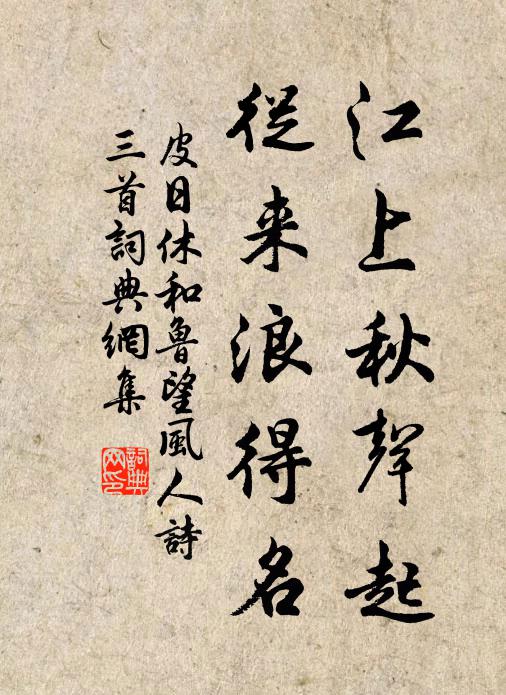 江上秋聲起
從来浪得名
皮日休和魯望風人詩
三首詞典網集
詞典
网印